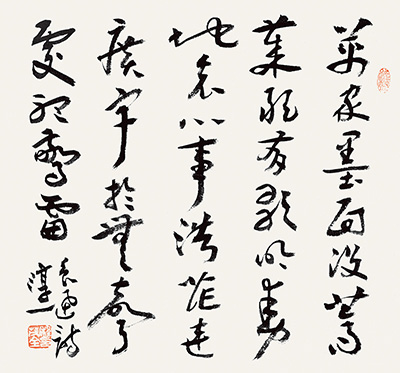 萬家墨面没蒿
萊敢有歌吟動
地哀心事浩茫連
廣宇於無聲
處聽驚雷
魯迅詩